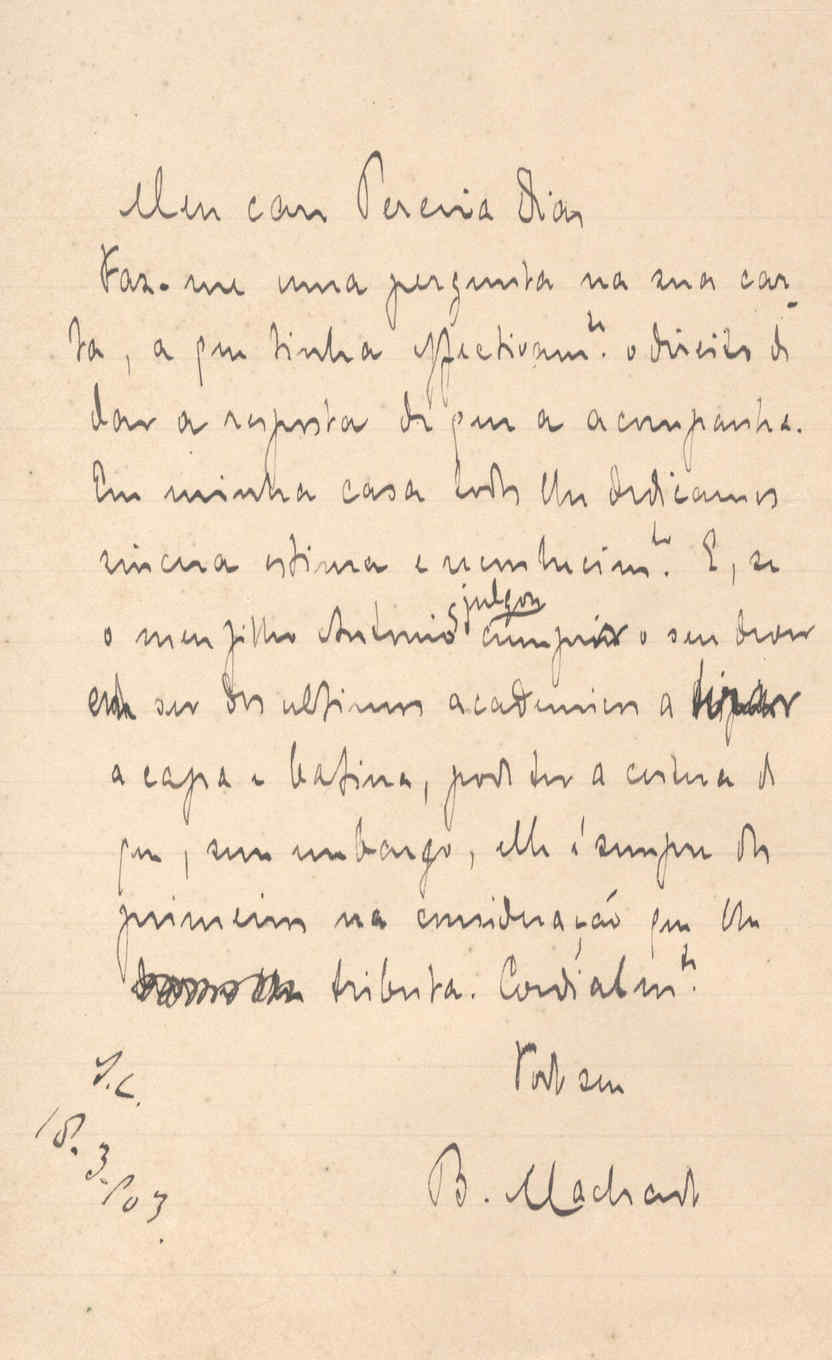 Meu caro Pereira Dias
Faz-me uma pergunta na sua car-
ta, a que tinha effectivam.te o direito de
dar a resposta de que a acompanha.
Em minha casa todos lhe dedicamos
sincera estima e reconhecim.to. E, se
o meu filho António julgou cumprir o seu dever
em ser dos ultimos academicos a
a capa e batina, pode ter a certeza de
que, sem embargo, elle é sempre dos
primeiros na consideração que lhe
tributa. Cordialm.te
Todo seu
B. Machado
S.C.
18.3.903.